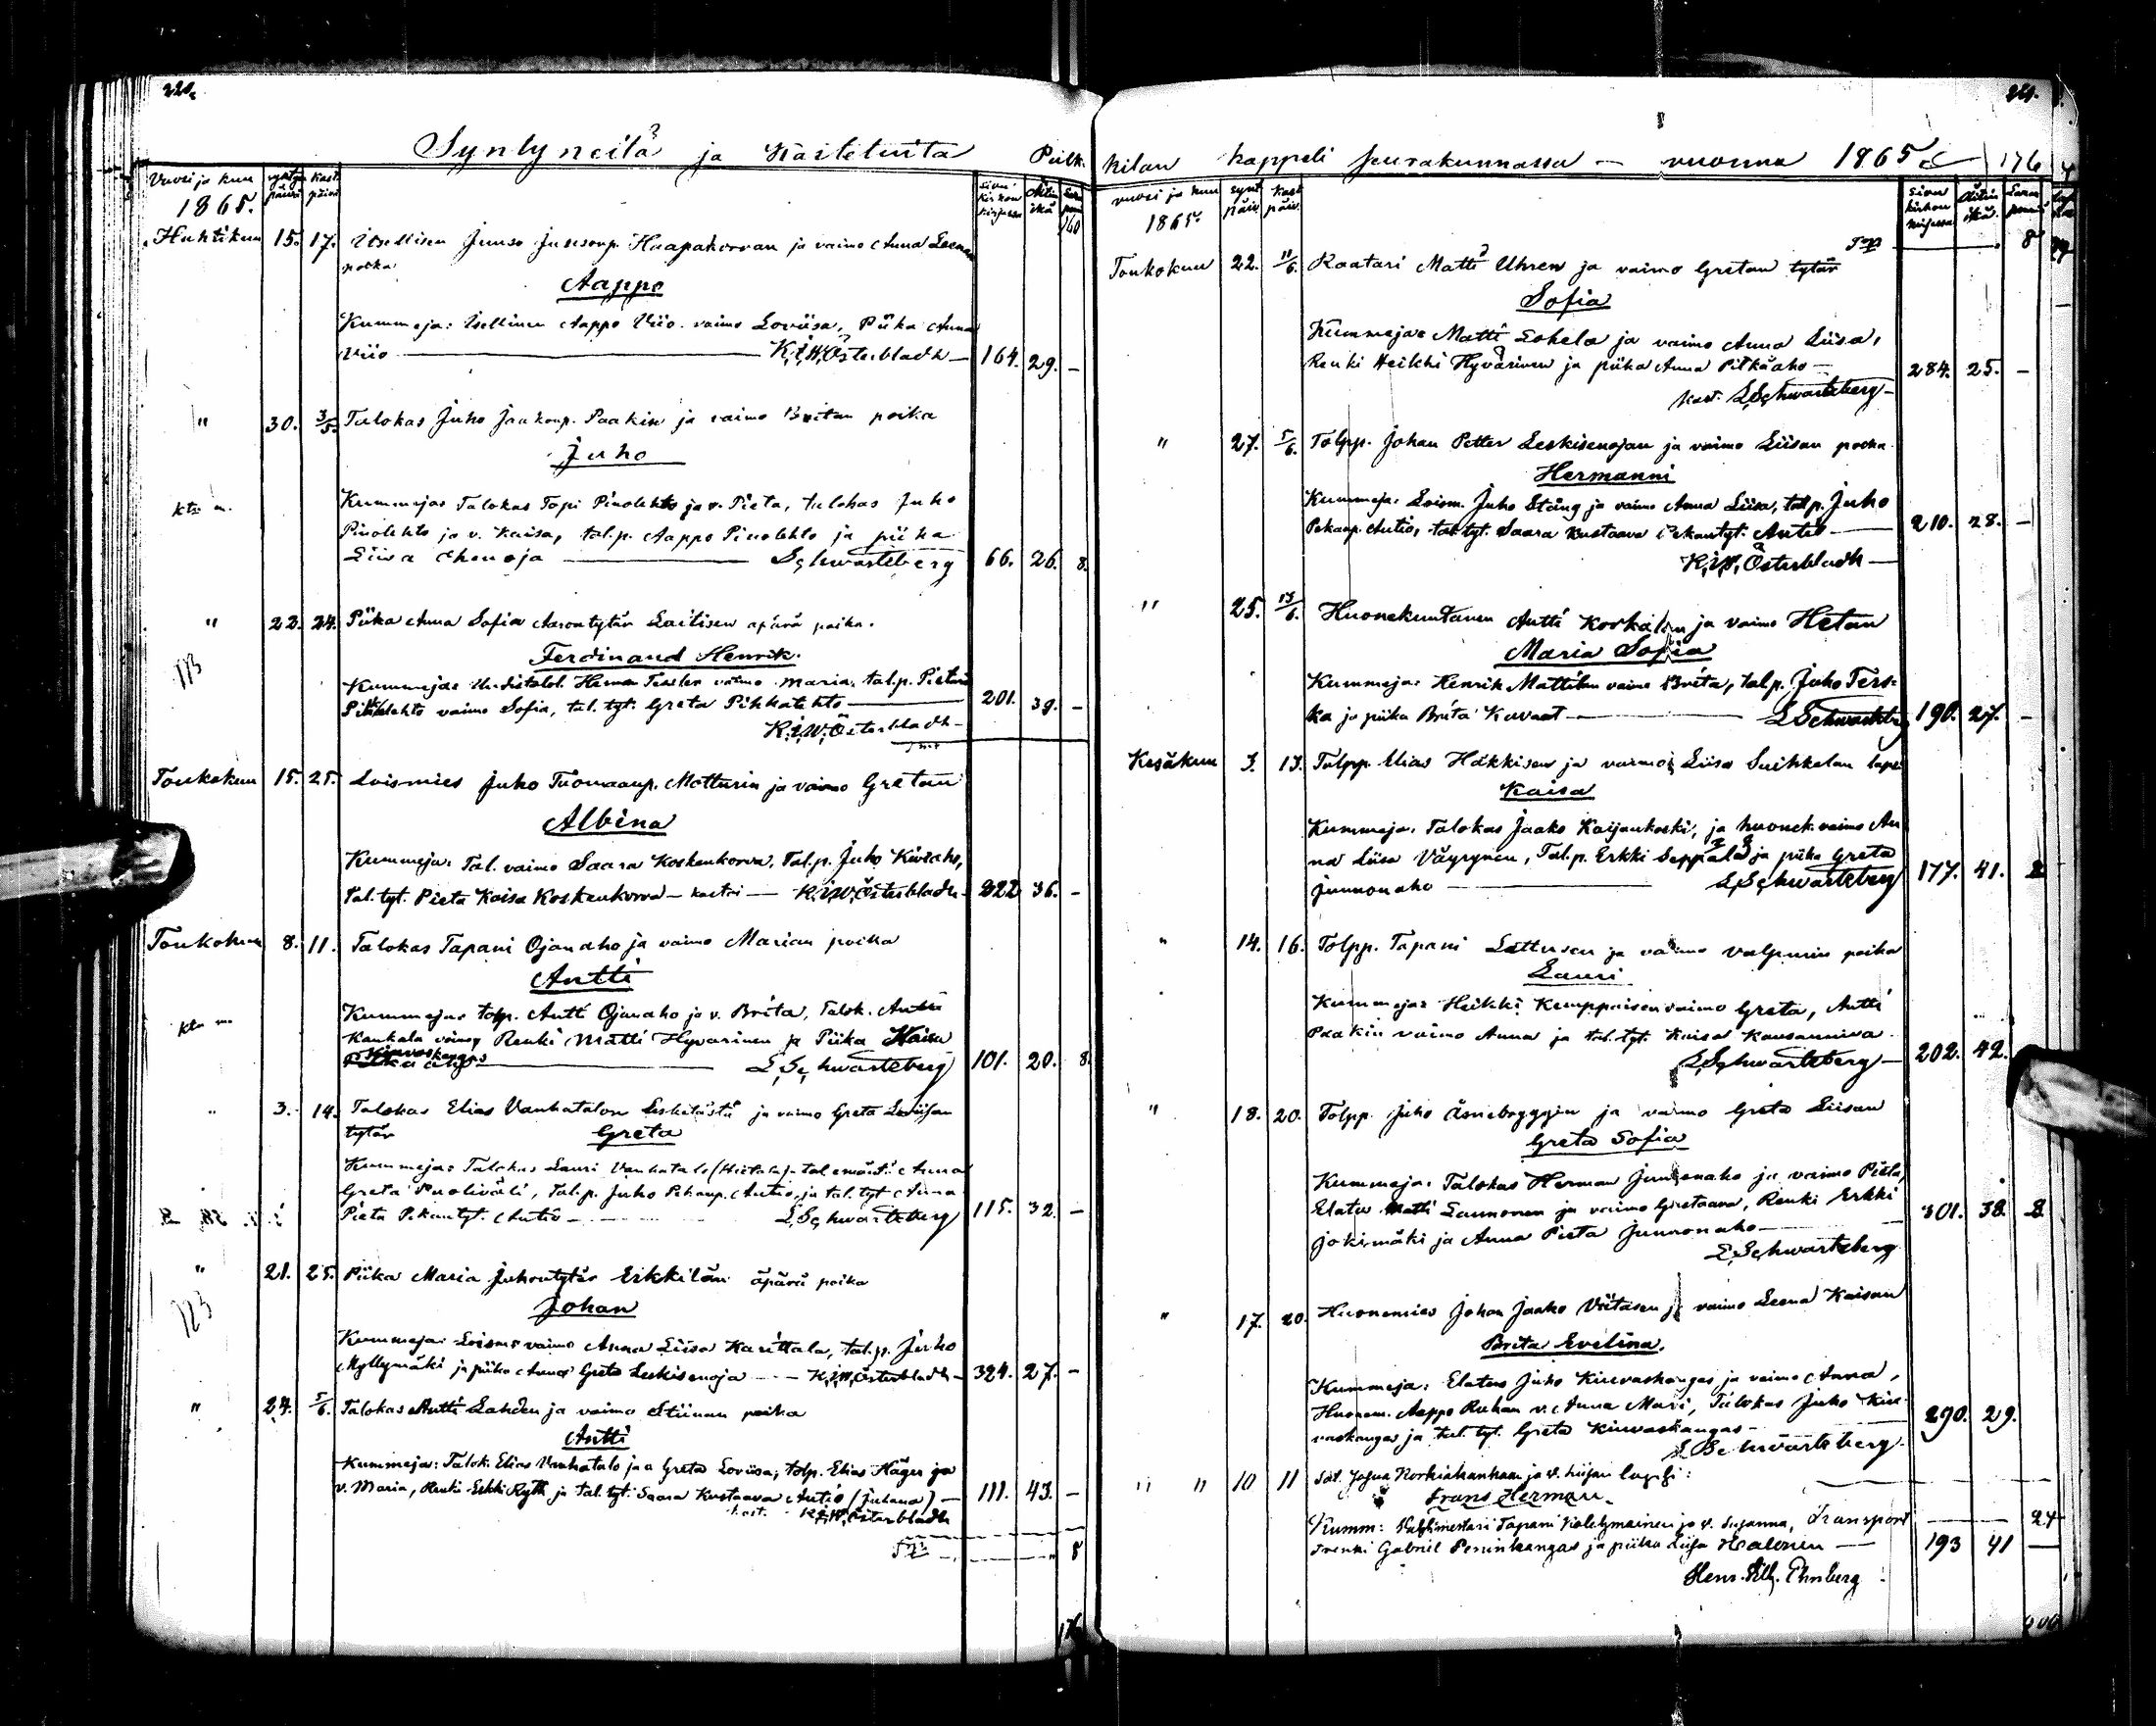 220.
Syntyneitä ja Kastetuita Pulk
Vuosi ja kuu
1865.
syntym päivä
kast päivä
sivu kirkon kirjassa
Äitin ikä
160
Huhtikuu 15. 17. Itsellisen Juuso Juusonp. Haapakorvan ja vaimo Anna Leenan
poika
Aappo
Kummeja: Itsellinen Aappo Viio vaimo Loviisa, Piika Anna
Viio — K.I.W. Österbladh — 164. 29. —
" 30. 3/5. Talokas Juho Jaakonp. Paakin ja vaimo Britan poika
Juho
Kummeja: Talokas Topi Pinolehto ja v. Pieta, talokas Juho
Pinolehto ja v. Kaisa, tal.p. Aappo Pinolehto ja piika
Liisa Ahonoja — Schwartzberg 66. 26. 8.
" 22. 24. Piika Anna Sofia Aarontytär Laitisen äpärä poika.
113
Ferdinand Henrik.
Kummeja: Herman vaimo Maria, tal.p. Pietari
vaimo Sofia, tal. tyt. Greta Pihkalehto — 201. 39. —
K.I.W. Österbladh —
Toukokuu 15. 25. Loismies Juho Tuomaanp. Matturin ja vaimo Gretan
Albina
Kummeja: Tal. vaimo Saara Koskenkorva, Tal.p. Juho Kiviaho,
tal. tyt. Pieta Kaisa Koskenkorva — kastoi — K.I.W. Österbladh — 322 36. —
Toukokuu 8. 11. Talokas Tapani Ojanaho ja vaimo Marian poika
Antti
Kummeja: tolp. Antti Ojanaho ja v. Brita, Talok. Antti
Kaukala vaimo, Renki Matti Hyvärinen ja Piika Kaisa
Kiuvaskangas — L. Schwartzberg 101. 20. 8.
" 3. 14. Talokas Elias Vanhatalon Leskelästä ja vaimo Greta Loviisan
tytär
Greta
Kummeja: Talokas Lauri Vanhatalo (Hietala) tal emäntä Anna
Greta Puoliväli, Tal.p. Juho Pekanp. Antio, ja tal. tyt Anna
Pieta Pekantyt. Antio — L. Schwartzberg 115. 32. —
" 21. 25. Piika Maria Juhontytär Erkkilän äpärä poika
123
Johan
Kummeja: Loism: vaimo Anna Liisa Karittala, tal.p. Juho
Myllymäki ja piika Anna Greta Leskisenoja — K.I.W. Österbladh — 324. 27. —
" 24. 5/6. Talokas Antti Lahden ja vaimo Stiinan poika
Antti
Kummeja: Talok. Elias Vanhatalo ja a Greta Loviisa, tolp. Elias Häger ja
v. Maria, Renki Erkki Ryth ja tal. tyt. Saara Kustaava Antio (Juhana) — 111. 43. —
kast. K.I.W. Österbladh
8
176
221.
kilan kappeli seurakunnassa — vuonna 1865 176
vuosi ja kuu
1865
synt päiv.
kast päiv.
sivu kirkon kirjassa
Äitin ikä.
8
Toukokuu 22. 11/6. Raatari Matti Uhren ja vaimo Gretan tytär
Sofia
Kummeja: Matti Lohela ja vaimo Anna Liisa,
Renki Heikki Hyvärinen ja piika Anna Pitkäaho — 284. 25. —
kast. L. Schwartzberg —
" 27. 5/6. Tolpp. Johan Petter Leskisenojan ja vaimo Liisan poika
Hermanni
Kummeja: Loism. Juho Stång ja vaimo Anna Liisa, tal.p. Juho
Pekanp. Antio, tal. tyt. Saara Kustaava Pekantyt. Antio — 210. 28. —
K.I.W. Österbladh —
" 25. 13/6. Huonekuntanen Antti Korkalan ja vaimo Hetan
Maria Sofia
Kummeja: Henrik Mattilan vaimo Brita, tal.p. Juho Ters=
ka ja piika Brita Kuvaat — L. Schwartzberg 190. 27. —
Kesäkuu 3. 13. Tolpp. Elias Häkkisen ja vaimo Liisa Suihkolan lapsi
Kaisa
Kummeja: Talokas Jaako Kaijankoski, ja huonek. vaimo An
na Liisa Väyrynen, Tal.p. Erkki Seppälä ja piika Greta
Junnonaho — L. Schwartzberg 177. 41. 8
" 14. 16. Tolpp. Tapani Lattusen ja vaimo Valpurin poika
Lauri
Kummeja: Heikki Kemppaisen vaimo Greta, Antti
Paakin vaimo Anna ja tal. tyt. Kaisa Kansanniva
L. Schwartzberg — 202. 42.
" 18. 20. Tolpp. Juho Åsnebryggin ja vaimo Greta Liisan
Greta Sofia
Kummeja: Talokas Herman Junnonaho ja vaimo Pieta,
Elatus Matti Launonen ja vaimo Kustaava, Renki Erkki
Jokimäki ja Anna Pieta Junnonaho — 301. 38. 8
L. Schwartzberg
" 17. 20. Huonemies Johan Jaako Viitasen ja vaimo Leena Kaisan
Brita Evelina.
Kummeja: Elatus Juho Kiuvaskangas ja vaimo Anna,
Huonem. Aappo Ruhan v. Anna Mari, Talokas Juho Kiu
vaskangas ja tal. tyt. Greta Kiuvaskangas — 290. 29.
L. Schwartzberg
" " 10 11 Tal. Korkiakankaan ja v. Liisan lapsi:
Frans Herman.
Kumm: Tapani Kolehmainen ja v. Susanna, Transport — 24
trenki Gabriel Peninkangas ja piika Liisa Halonen — 193 41 —
Henr. Wilh. Ehnberg